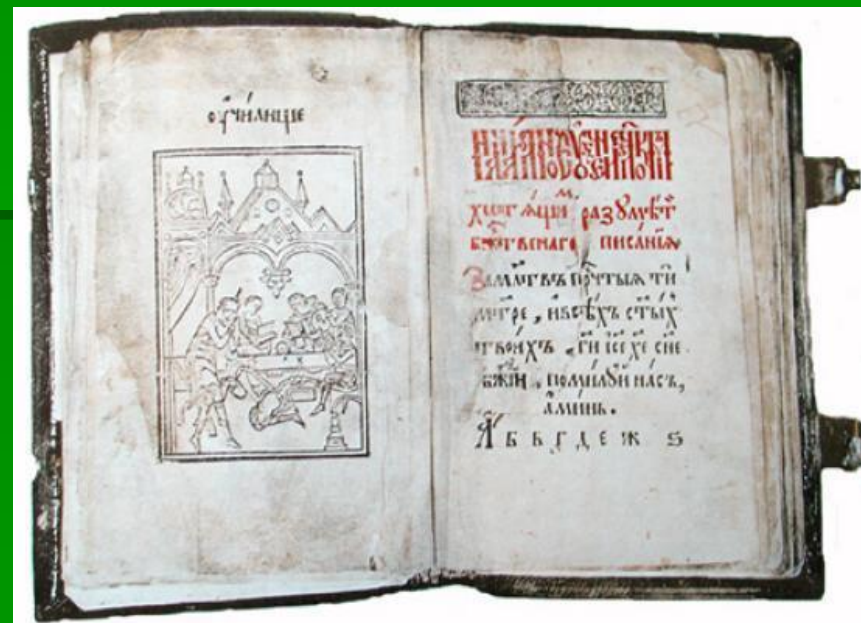 ᲂу҆чи́лище
хотѧ́щимъ разꙋмѣ́ти
бж҃е́ственаго писа́нїѧ
За мл҃твъ пречⷭ҇тыѧ тѝ
мт҃ре, и҆ всѣ́хъ ст҃ы́хъ
твои́хъ, гд҇и і҆с҃е хе҃ сн҃е
бж҃їи, поми́лꙋй на́съ,
а҆ми́нь.
А Б В Г Д Е Ж Ѕ